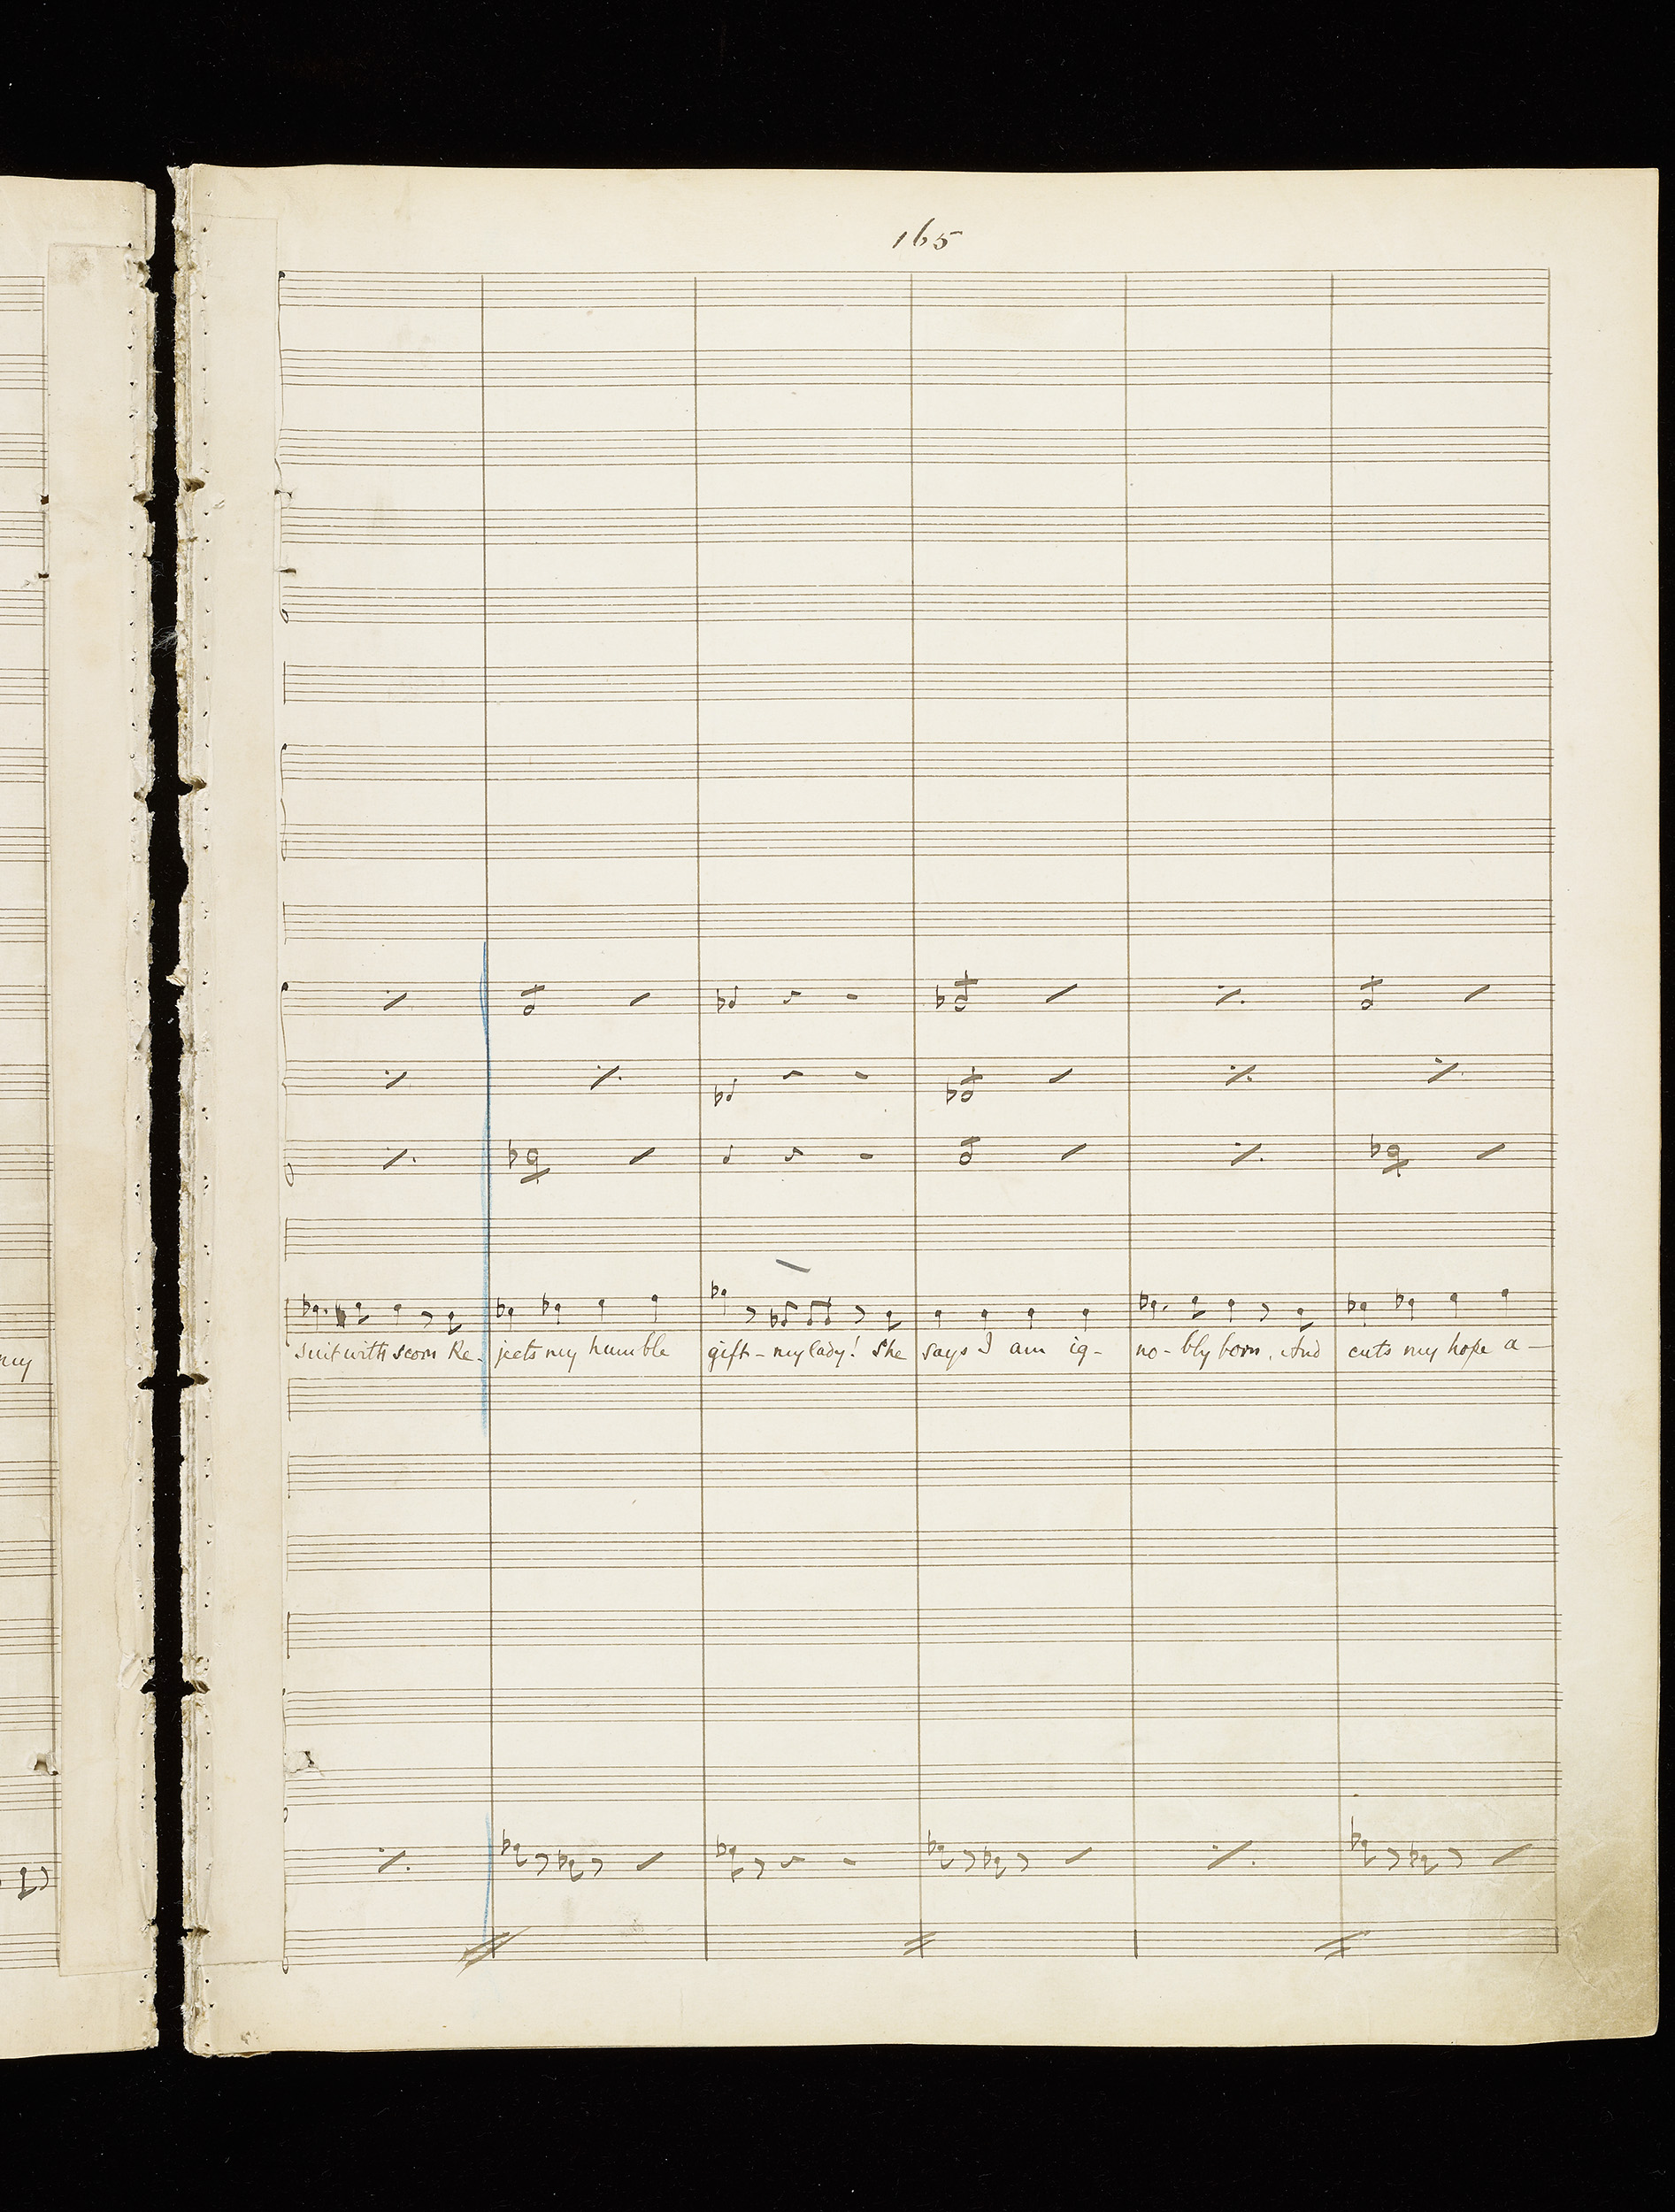 165
my
suit with scorn Re- jects my humble gift - my lady! She says I am ig- no - bly born, And cuts my hope a -